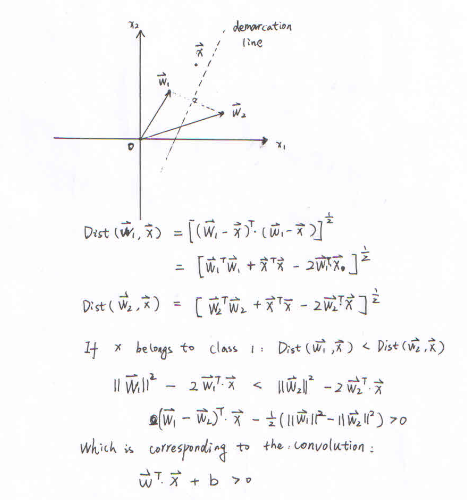 x₂
demarcation
line
x⃗
w⃗₁
w⃗₂
0
x₁
Dist(w⃗₁, x⃗) = [(w⃗₁ - x⃗)ᵀ·(w⃗₁ - x⃗)]^½
= [w⃗₁ᵀw⃗₁ + x⃗ᵀx⃗ - 2w⃗₁ᵀx⃗]^½
Dist(w⃗₂, x⃗) = [w⃗₂ᵀw⃗₂ + x⃗ᵀx⃗ - 2w⃗₂ᵀ·x⃗]^½
If x belongs to class 1: Dist(w⃗₁, x⃗) < Dist(w⃗₂, x⃗)
||w⃗₁||² - 2w⃗₁ᵀ·x⃗ < ||w⃗₂||² - 2w⃗₂ᵀ·x⃗
(w⃗₁ - w⃗₂)ᵀ·x⃗ - ½(||w⃗₁||² - ||w⃗₂||²) > 0
Which is corresponding to the convolution:
w⃗ᵀ·x⃗ + b > 0